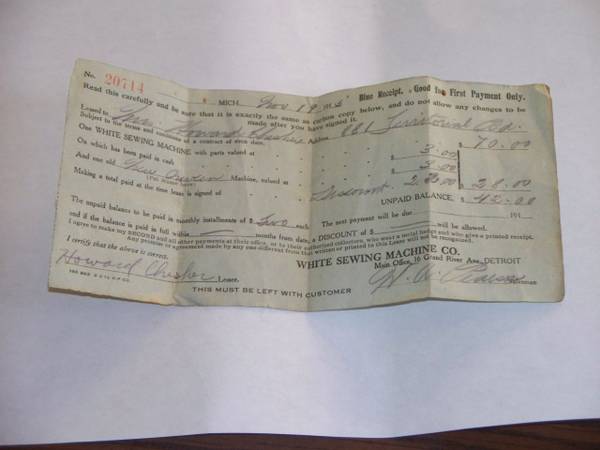 No. 20714 MICH. Nov 19 Blue Receipt. Good for First Payment Only.
Read this carefully and be sure that it is exactly the same as carbon copy below, and do not allow any changes to be made after you have signed it.
Leased to Mrs Howard Address 881 Territorial Rd.
Subject to the terms and conditions of a contract of even date.
One WHITE SEWING MACHINE with parts valued at $ 70.00
On which has been paid in cash $ 3.00
And one old Machine, valued at $ 5.00
Making a total paid at the time lease is signed of Discount $ 28.00
UNPAID BALANCE, $ 42.00
The unpaid balance to be paid in monthly installments of $ Two each. The next payment will be due 191
and if the balance is paid in full within months from date, a DISCOUNT of $ will be allowed.
I agree to make my SECOND and all other payments at their office, or to their authorized collectors, who wear a metal badge and who give a printed receipt.
Any promise or agreement made by any one different from that written or printed in this Lease will not be recognized.
I certify that the above is correct.
WHITE SEWING MACHINE CO.
Main Office, 16 Grand River Ave., DETROIT
Howard Lessee.
THIS MUST BE LEFT WITH CUSTOMER